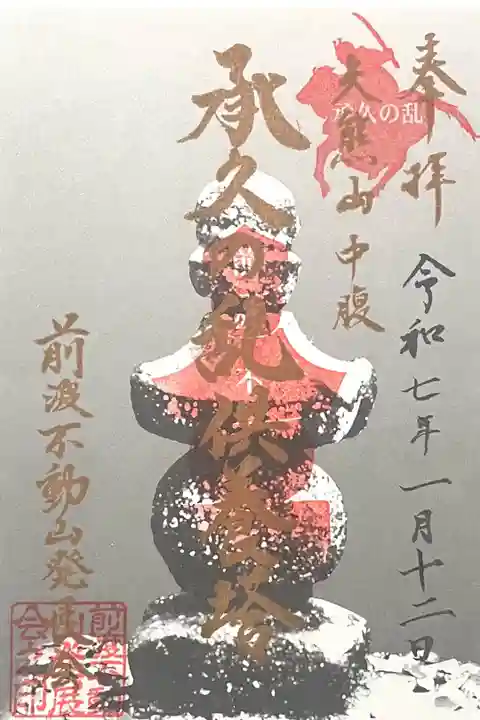 奉拝
令和七年一月十二日
大熊山中腹
承久の乱
承久の乱供養塔
前渡不動山発展会